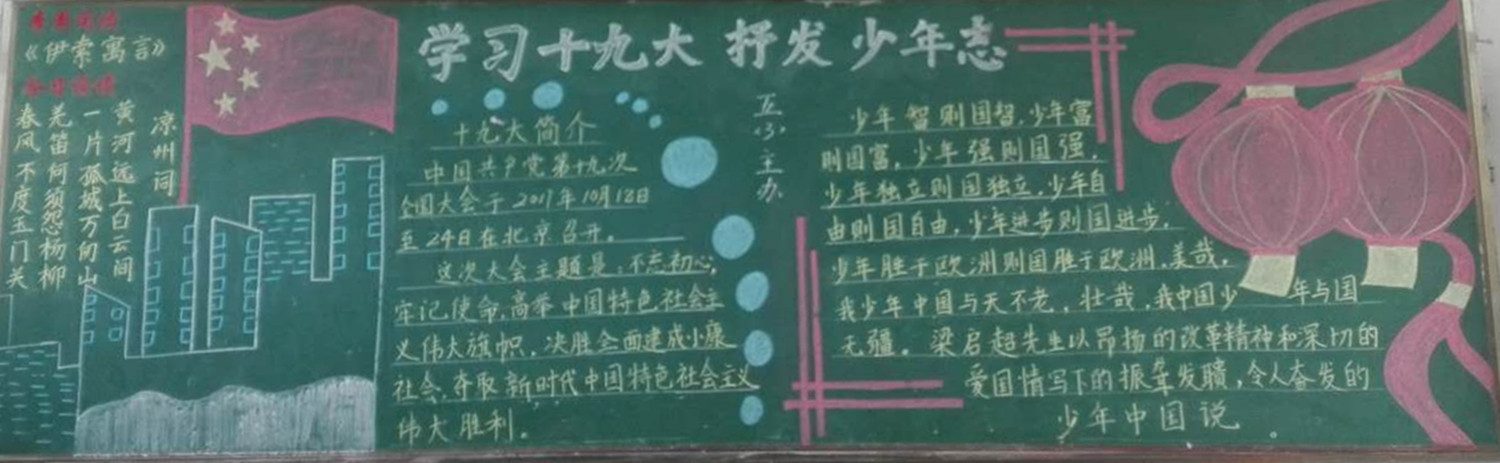 《伊索寓言》
凉州词
黄河远上白云间
一片孤城万仞山
羌笛何须怨杨柳
春风不度玉门关
学习十九大 抒发少年志
十九大简介
中国共产党第十九次
全国大会于2017年10月18日
至24日在北京召开。
这次大会主题是:不忘初心,
牢记使命,高举中国特色社会主
义伟大旗帜,决胜全面建成小康
社会,夺取新时代中国特色社会主义
伟大胜利。
五(3)主办
少年智则国智,少年富
则国富,少年强则国强,
少年独立则国独立,少年自
由则国自由,少年进步则国进步,
少年胜于欧洲则国胜于欧洲,美哉,
我少年中国与天不老,壮哉,我中国少年与国
无疆。梁启超先生以昂扬的改革精神和深切的
爱国情写下的振聋发聩,令人奋发的
少年中国说。